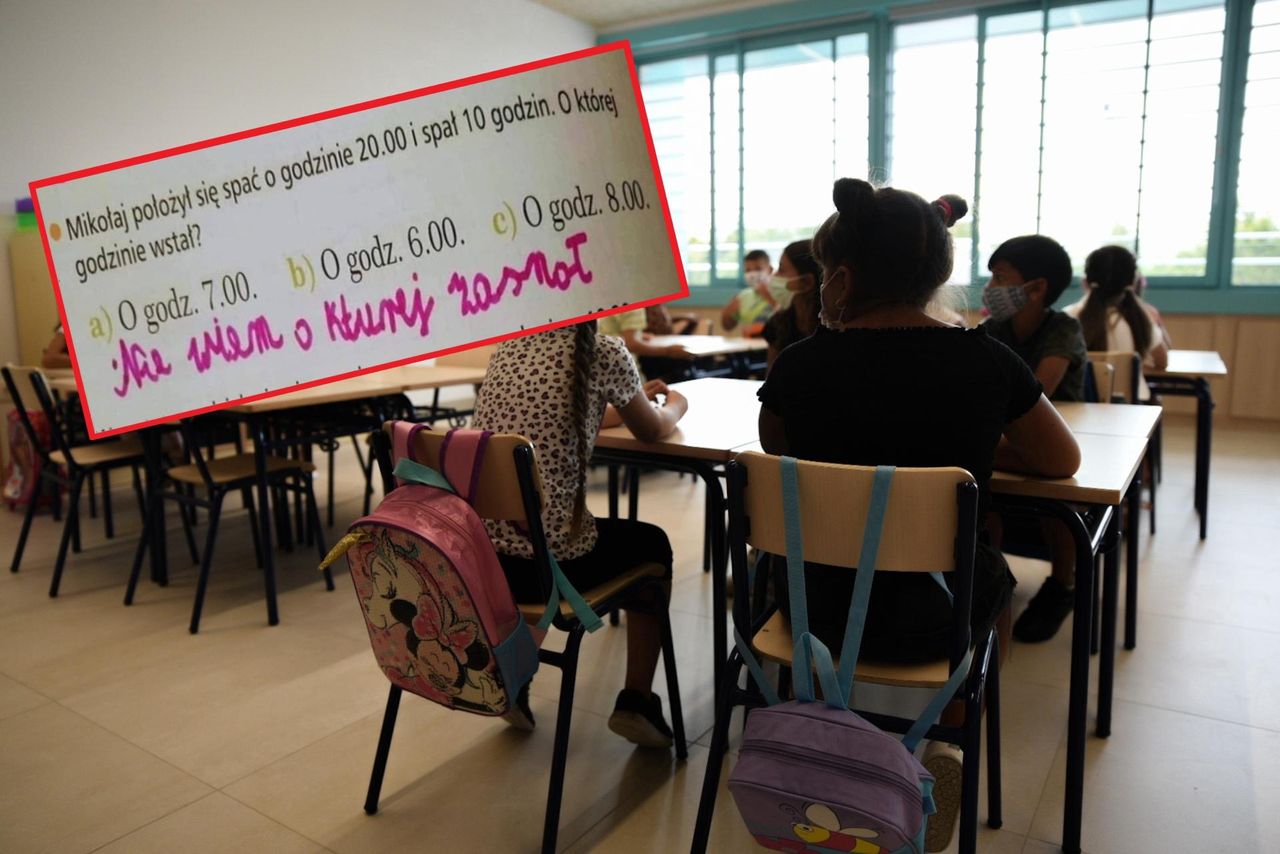 Mikołaj położył się spać o godzinie 20.00 i spał 10 godzin. O której
godzinie wstał?
a) O godz. 7.00. b) O godz. 6.00. c) O godz. 8.00.
Nie wiem o kturej zasnoł